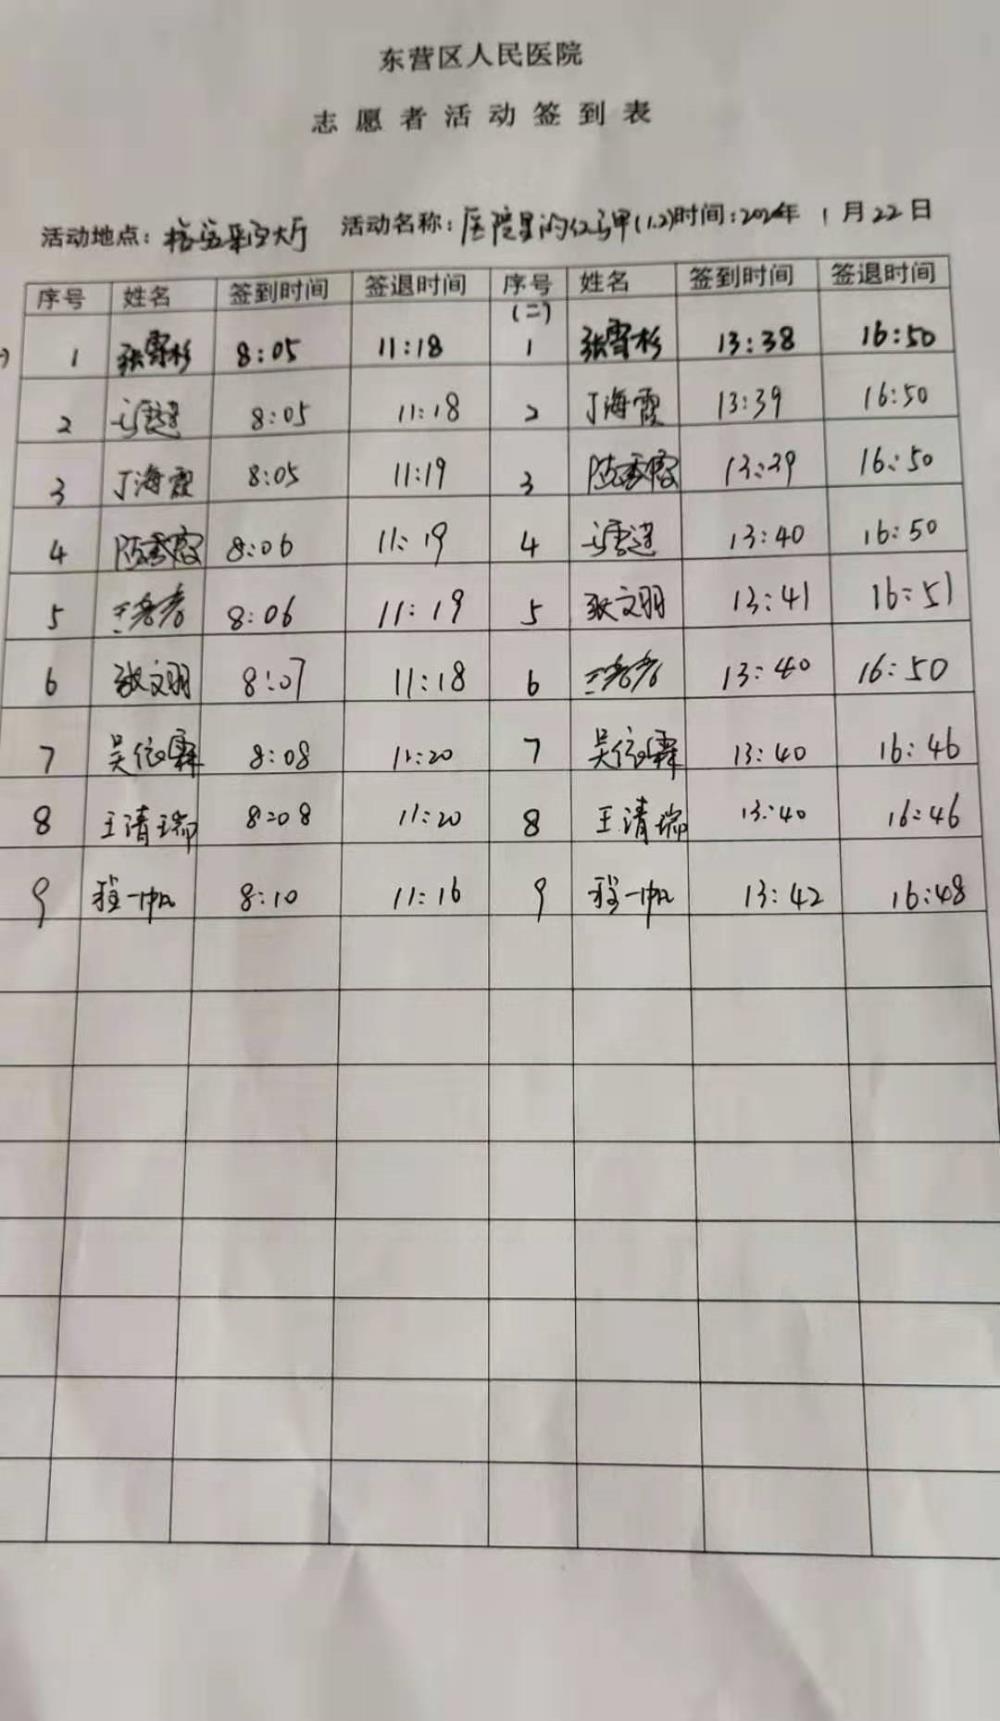 东营区人民医院
志愿者活动签到表
活动地点: 大厅 活动名称: 医院里的红马甲(1.2) 时间: 年 1月22日
序号 姓名 签到时间 签退时间 序号 姓名 签到时间 签退时间
(二)
1 张雪杉 8:05 11:18 1 张雪杉 13:38 16:50
2 8:05 11:18 2 丁海霞 13:39 16:50
3 丁海霞 8:05 11:19 3 陈秀霞 13:39 16:50
4 陈秀霞 8:06 11:19 4 13:40 16:50
5 8:06 11:19 5 张文朋 13:41 16:51
6 张文朋 8:07 11:18 6 13:40 16:50
7 吴依霖 8:08 11:20 7 吴依霖 13:40 16:46
8 王清瑞 8:08 11:20 8 王清瑞 13:40 16:46
9 程一帆 8:10 11:16 9 程一帆 13:42 16:48